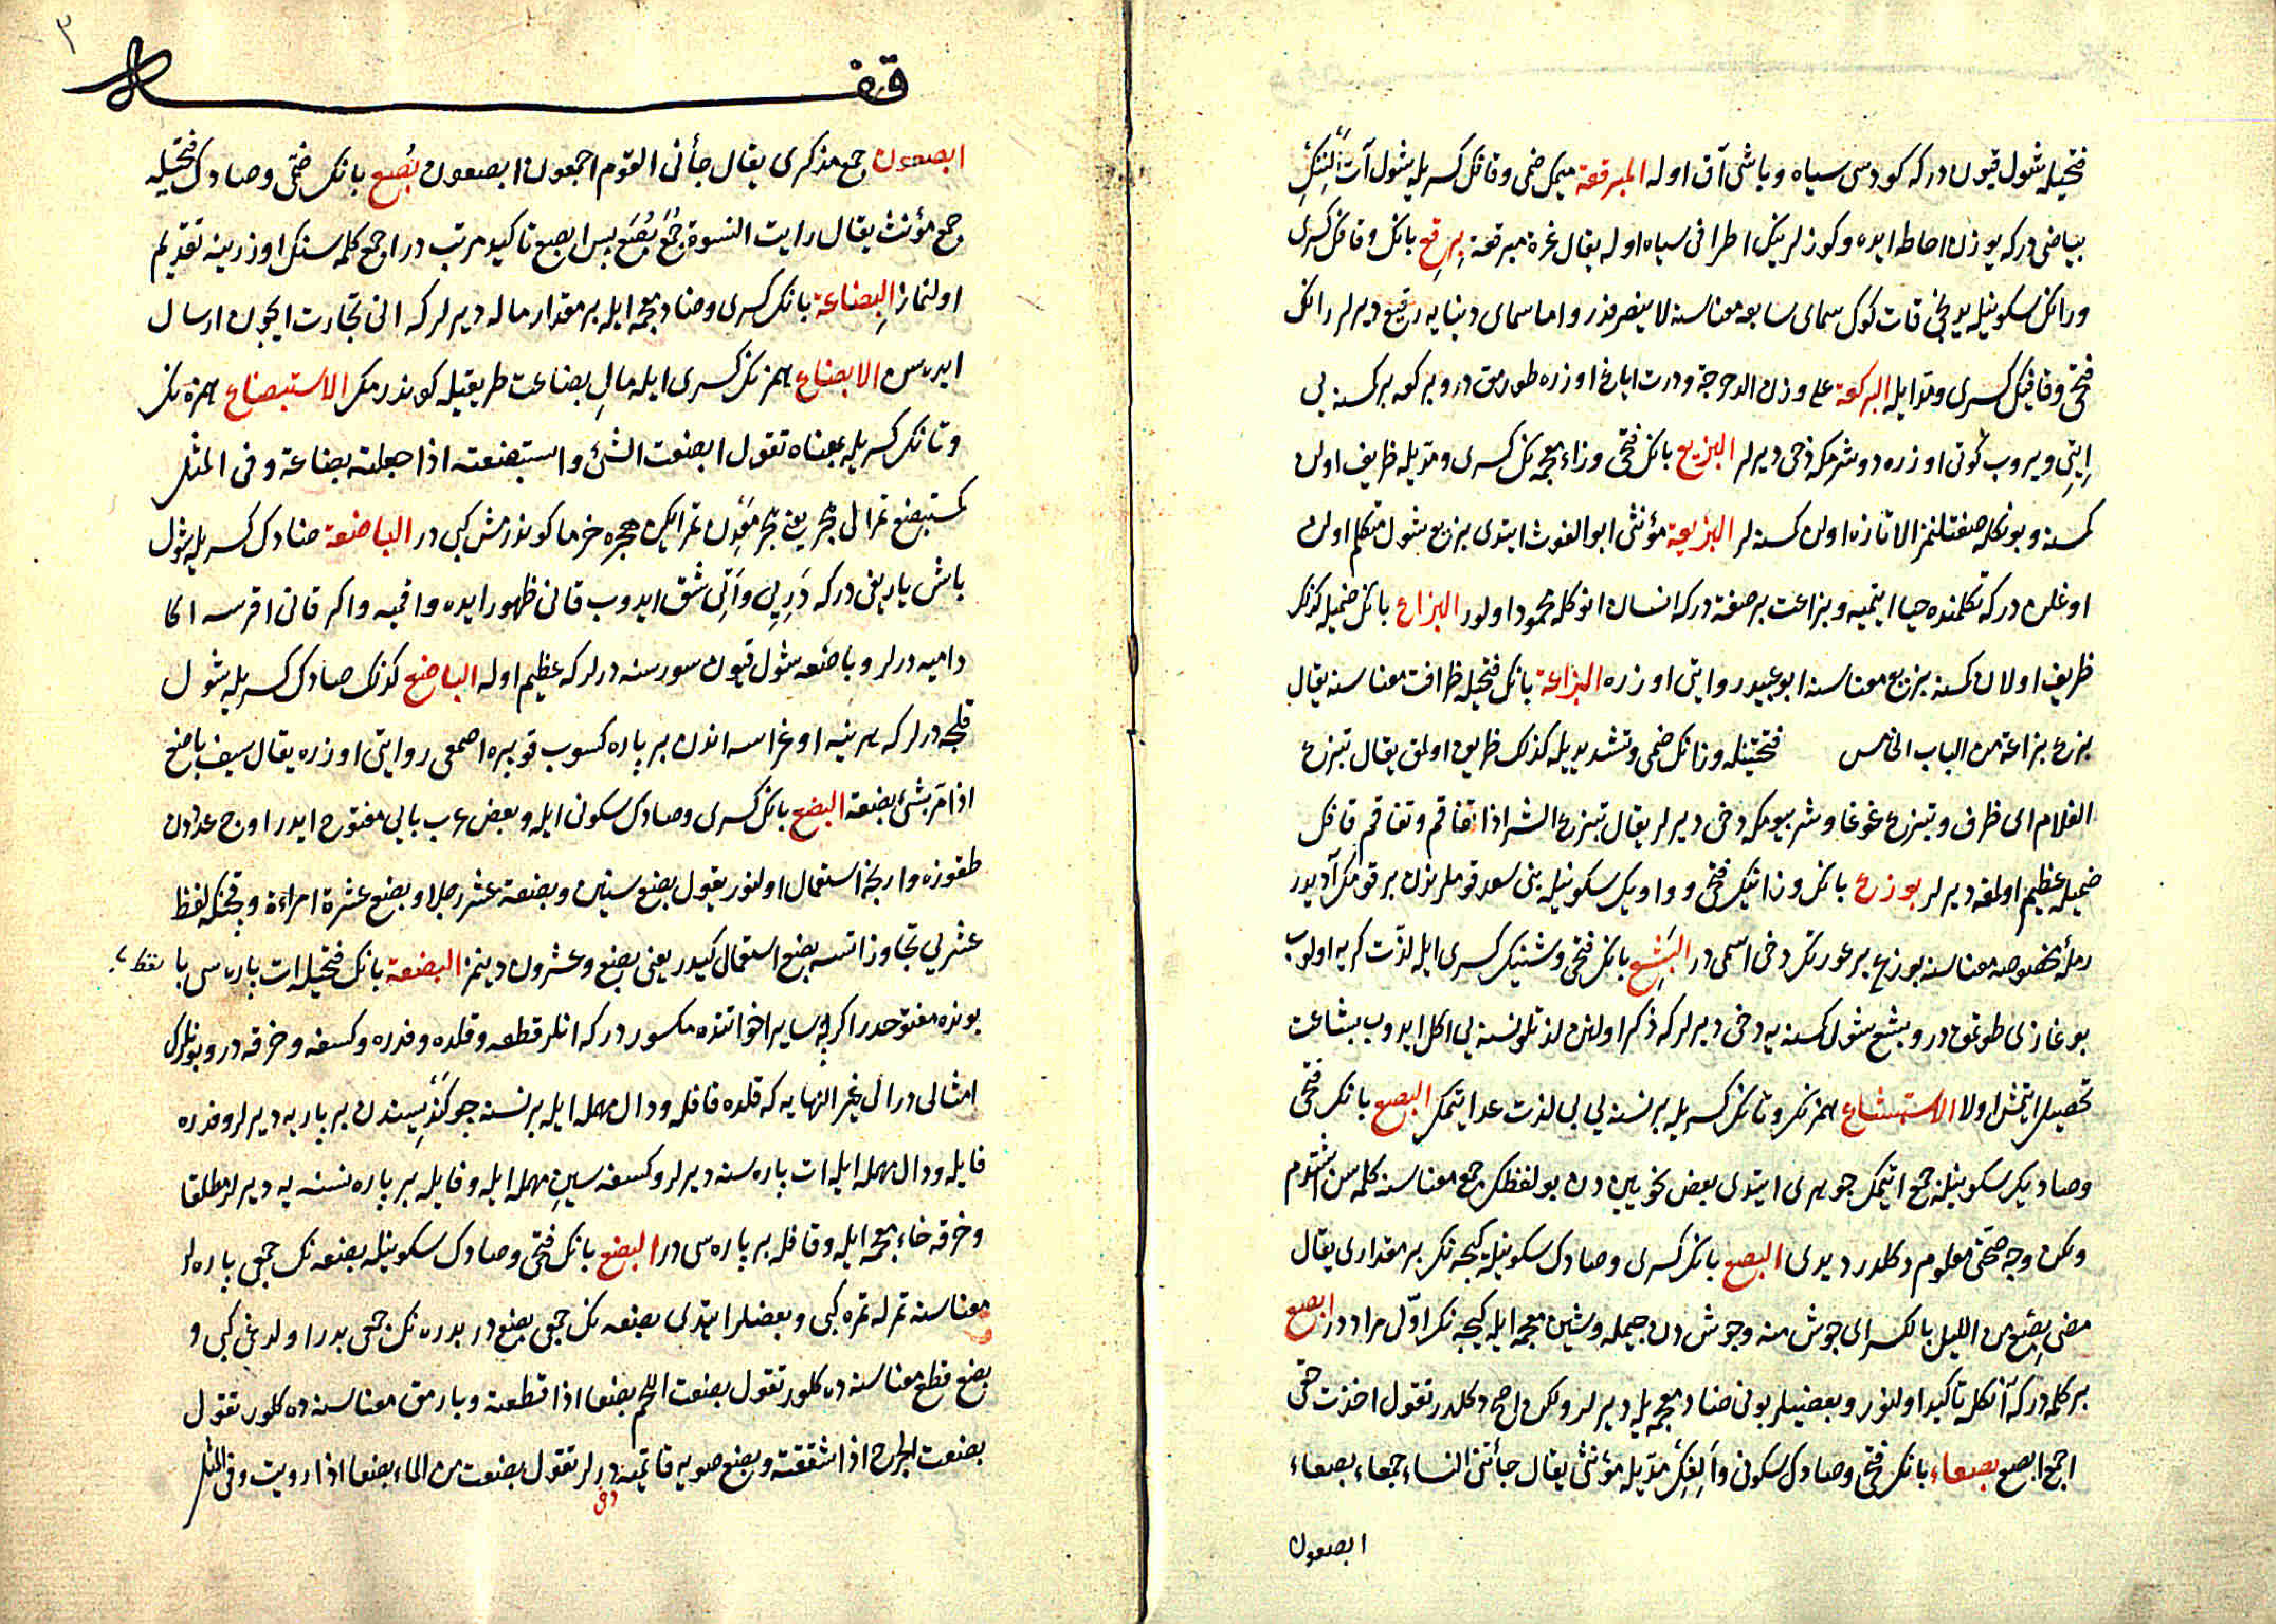 فتحيله شول قيون دركه كودسى سياه وباشى آق اوله المبرقعة ميمك ضمى وقافك كسريله شول آت الننك
بياضى دركه يوزن احاطه ايده وكوزلرينك اطرافى سياه اوله يقال غرة مبرقعة برقع بانك وقافك كسرى
ورانك سكونيله يدنجى قات كوك سماى سابعه معناسنه لا ينصرفدر واما سماى دنيايه رقيع ديرلر رانك
فتحى وقافك كسرى ومد ايله البركعة على وزن الدحرجة ودرت اياغ اوزره طورمق در وبركعه بركسنه يى
ايتى ويروب كوتى اوزره دوشرمكه دخى ديرلر البزيع بانك فتحى وزاء معجمه نك كسرى ومديله ظريف اولن
كمسنه وبونكله صفتلنمز الا تازه اولن كمسنه لر البزيعة مؤنثى ابو الغوث ايتدى بزيع شول متكلم اولن
اوغلن دركه تكلمنده حيا ايتميه وبزاعت بر صفت دركه انسان انوكله محمود اولور البزاع بانك ضميله كذلك
ظريف اولان كمسنه بزيع معناسنه ابو عبيد روايتى اوزره البزاعة بانك فتحيله ظرافت معناسنه يقال
بزع بزاعة من الباب الخامس فتحتينله وزانك ضمى وتشديديله كذلك ظريف اولمق يقال تبزع
الغلام اى ظرف وتبزع غوغا وشر بيومكه دخى ديرلر يقال تبزع الشر اذا تفاقم وتفاقم قافك
ضميله عظيم اولمغه ديرلر بوزع بانك وزانيك فتحى وواويك سكونيله بنى سعد قوملرندن بر قومك آديدر
رملة مخصوصه معناسنه بوزع بر عورتك دخى اسمى در البشع بانك فتحى وشينك كسرى ايله لذت كريه اولوب
بوغازى طوتمق در وبشع شول كمسنه يه دخى ديرلر كه ذكر اولنن لذتلو نسنه يى اكل ايدوب بشاعت
تحصيل ايتمش اولا الاستبشاع همزنك وتانك كسريله بر نسنه يى بى لذت عد ايتمك البصع بانك فتحى
وصاديك سكونيله جمع ايتمك جوهرى ايتدى بعض نحويين دن بو لفظك جمع معناسنه كلمه سن اشتدم
ولكن وجه صحتى معلوم دكلدر ديدى البصع بانك كسرى وصادك سكونيله كيجه نك بر مقدارى يقال
مضى بصع من الليل بالكسر اى جوش منه وجوش دن جيمله وشين معجمه ايله كيجه نك اولى مراد در ابصع
بر كلمه دركه آنكله تاكيد اولنور وبعضيلر بونى ضاد معجمه يله ديرلر ولكن اصح دكلدر تقول اخذت حقى
اجمع ابصع بصعاء بانك فتحى وصادك سكونى والفك مديله مؤنثى يقال جأتنى النساء جمعاء بصعاء
ابصعون
٣
قف
ابصعون جمع مذكرى يقال جأنى القوم اجمعون ابصعون بصع بانك ضمى وصادك فتحيله
جمع مؤنث يقال رايت النسوة جمع بصع پس ابصع تاكيد مرتب در اجمع كلمه سنك اوزرينه تقديم
اولنماز البضاعة بانك كسرى وضاد معجمه ايله بر مقدار ماله ديرلر كه انى تجارت ايچون ارسال
ايده سن الابضاع همزنك كسرى ايله مالى بضاعت طريقيله كوندرمك الاستبضاع همزه نك
وتانك كسريله بمعناه تقول ابضعت الشئ واستبضعته اذا جعلته بضاعة وفى المثل
كمستبضع تمر الى هجر يعنى هجر معدن تمر ايكن هجره خرما كوندرمش كبى در الباضعة ضادك كسريله شول
باش ياريغى دركه دريى واتى شق ايدوب قانى ظهور ايده واقميه واكر قانى اقرسه اكا
داميه درلر وباضعه شول قيون سورسنه درلر كه عظيم اوله الباضع كذلك ضادك كسريله شول
قلجه درلر كه هر نيه اوغراسه اندن بر پاره كسوب قوپره اصمعى روايتى اوزره يقال سيف باضع
اذا مر بشئ بضعه البضع بانك كسرى وضادك سكونى ايله وبعض عرب بايى مفتوح ايدر اوچ عددن
طقوزه وارنجه استعمال اولنور يقول بضع سنين وبضعة عشر رجلا وبضع عشرة امراءة وقچنكه لفظ
عشر يى تجاوز اتسه بضع استعمال كيدر يعنى بضع وعشرون دينمز البضعة بانك فتحيله ات پاره سى با نقط
بونده مفتوحدر اكرچه ساير اخواتنده مكسور دركه انلر قطعه وفلذه وفدره وكسفه وخرقه در وبونلرك
امثالى در الى غير النهايه كه فلده فافله ودال مهمله ايله بر نسنه جوكندسندن بر پاريه ديرلر وفدره
فايله ودال مهمله ايله ات پاره سنه ديرلر وكسفه سين مهمله ايله وفايله بر پاره نسنه يه ديرلر مطلقا
وخرقه خاء معجمه ايله وقافله بر پاره سى در البضع بانك فتحى وضادك سكونيله بضعه نك جمعى پاره لر
معناسنه تمر له تمره كبى وبعضلر ايتدى بضعه نك جمعى بضع در بدره نك جمعى بدر اولدغى كبى و
بضع قطع معناسنه ده كلور تقول بضعت اللحم بضعا اذا قطعته ويارمق معناسنه ده كلور تقول
بضعت الجرح اذا شققته وبضع صويه قانميه درلر تقول بضعت من الماء بضعا اذا رويت وفى المثل
دخى